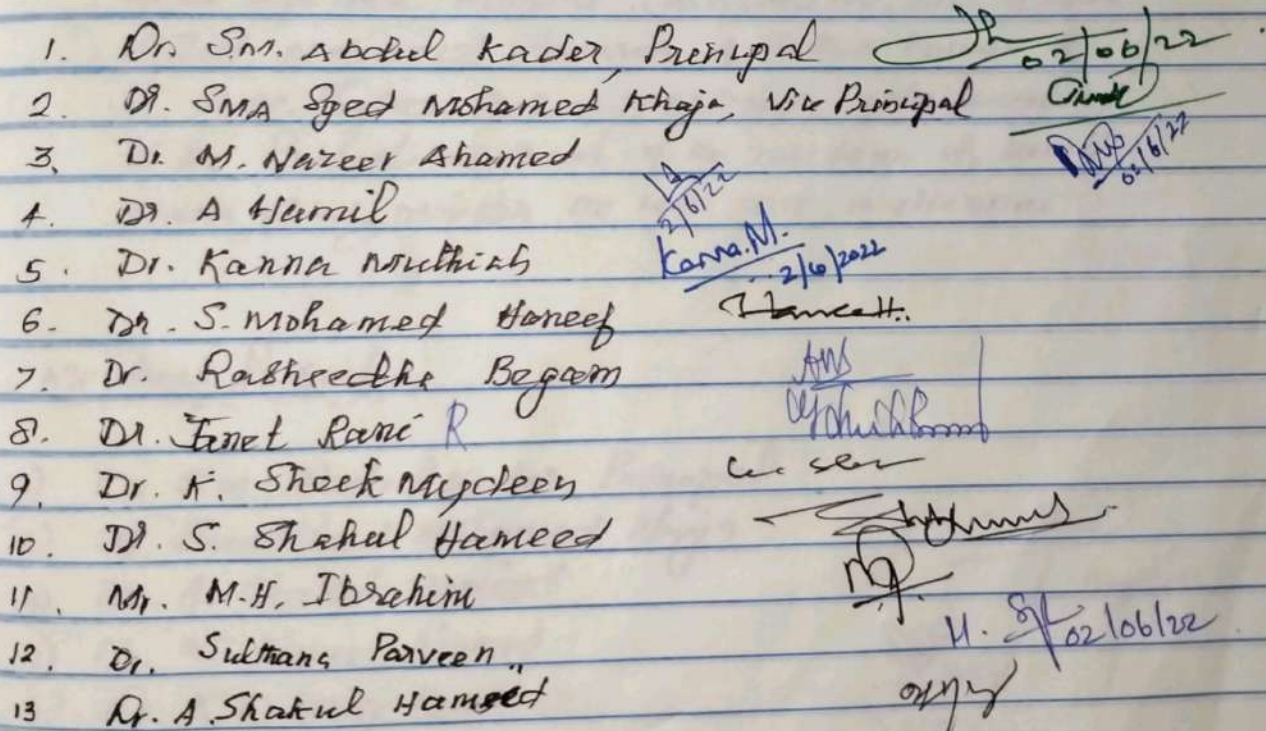 1. Dr. S.M. Abdul Kader, Principal 02/06/22
2. Dr. SMA Syed Mohamed Khaja, Vice Principal
3. Dr. M. Nazeer Ahamed 02/6/22
4. Dr. A Hamil 2/6/22
5. Dr. Kanna Muthiah Kanna.M. 2/6/2022
6. Dr. S. Mohamed Haneef
7. Dr. Rasheedha Begam
8. Dr. Janet Rani R
9. Dr. K. Sheek Mydeen
10. Dr. S. Shahul Hameed
11. Mr. M.H. Ibrahim
12. Dr. Sulthana Parveen 02/06/22
13 Dr. A. Shakul Hameed